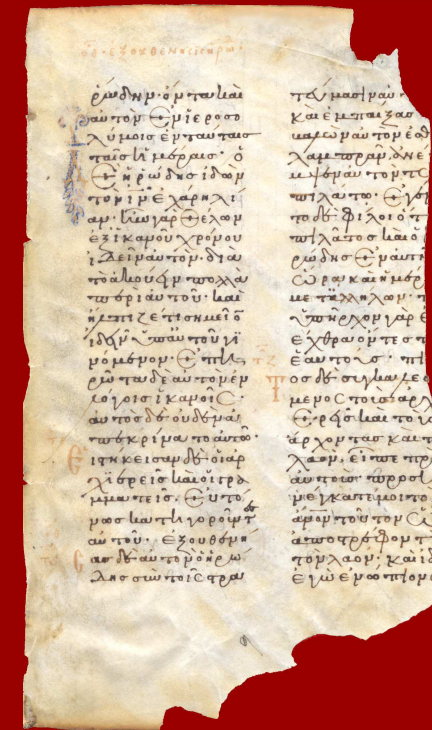 ρώδην· όντα και
αυτὸν ἐν ἱεροσο
λύμοις ἐν ταύταις
ταῖς ἡμέραις· ὁ
δὲ ἡρώδης ἰδὼν
τὸν ιν ἐχάρη λί
αν· ἦν γὰρ θέλων
ἐξ ἱκανοῦ χρόνου
ἰδεῖν αὐτὸν· διὰ
τὸ ἀκούειν πολλὰ
περὶ αὐτοῦ· καὶ
ἤλπιζέ τι σημεῖο
ἰδεῖν ὑπ αὐτοῦ γι
νόμενον· ἐπη
ρώτα δὲ αὐτὸν ἐν
λόγοις ἱκανοῖς·
αὐτὸς δὲ οὐδὲν ἀ
πεκρίνατο αὐτῶ·
ειστήκεισαν δὲ οἱ ἀρ
χιερεῖς καὶ οἱ γρα
μματεῖς· εὐτό
νως κατηγοροῦντες
αὐτοῦ· ἐξουθενή
σας δὲ αὐτὸν ὁ ἡρώ
δης σὺν τοῖς στρα
τεύμασιν αὐ
καὶ ἐμπαίξας
αὐτὸν ἐσ
λαμπρὰν ἀνέ
μψεν αὐτὸν
πιλάτω· ἐγέν
το δὲ φίλοι ὅ τ
πιλάτος καὶ ὁ
ρώδης ἐν αὐτῆ
ὥρα καὶ ἡμέρ
με τ ἀλλήλων·
ὑπῆρχον γὰρ ἐ
ἔχθρα ὄντες π
ἑαυτούς· πι
Τος δὲ συγκαλεσ
μενος τοὺς ἀρχ
ερεῖς καὶ τοὺς
ἄρχοντας καὶ τ
λαὸν, εἶπε πρ
αὐτούς· προσή
νέγκατέ μοι τὸ
ἀνον τοῦτον ὡ
ἀποστρέφοντ
τὸν λαόν· καὶ ἰδ
ἐγὼ ἐνώπιον